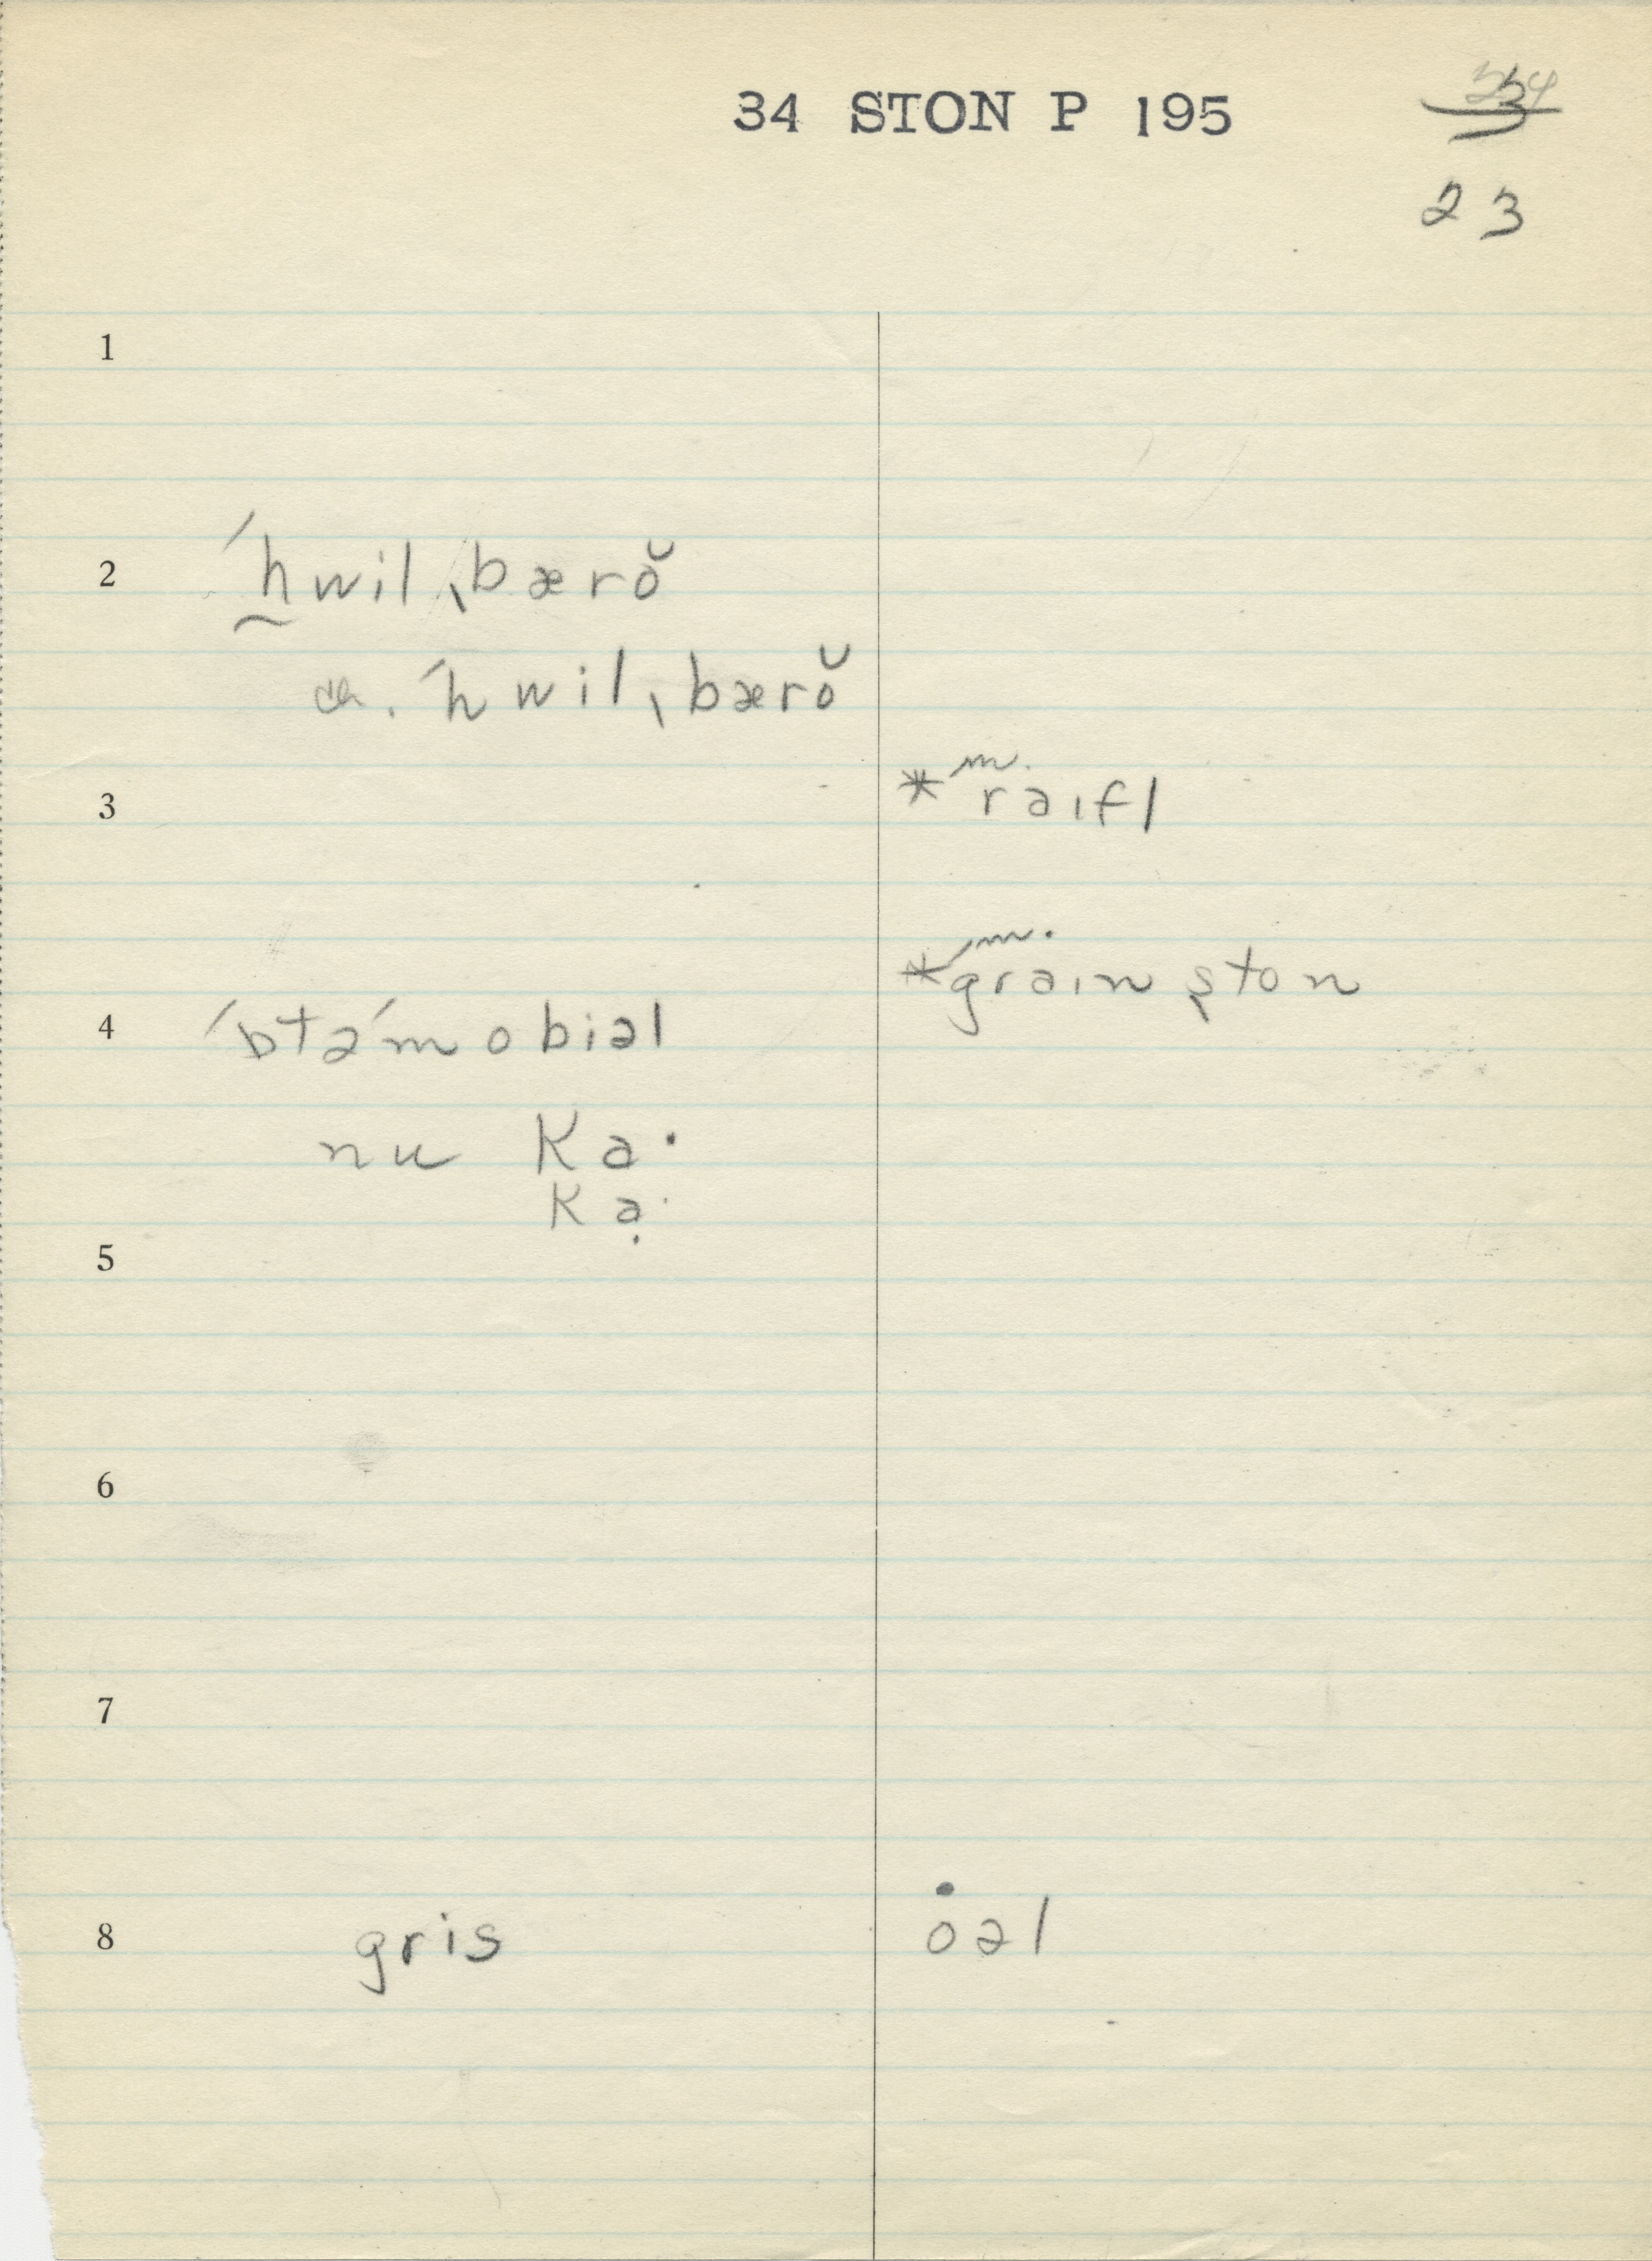 34 STON P 195
23
1
2 ˈhwilˌbærŏ
ˈhwilˌbærŏ
3 * m. raɪfl
* m. graɪn ston
4 ˈɒtəˈmobiəl
nu Ka·
Kạ·
5
6
7
8 gris ȯəl